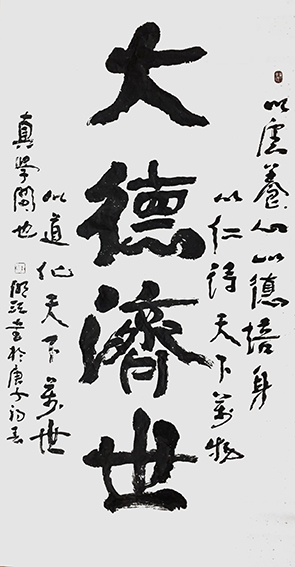 以虛養心以德培身
以仁待天下萬物
大德濟世
以道化天下萬世
真學問也
書於庚子初春